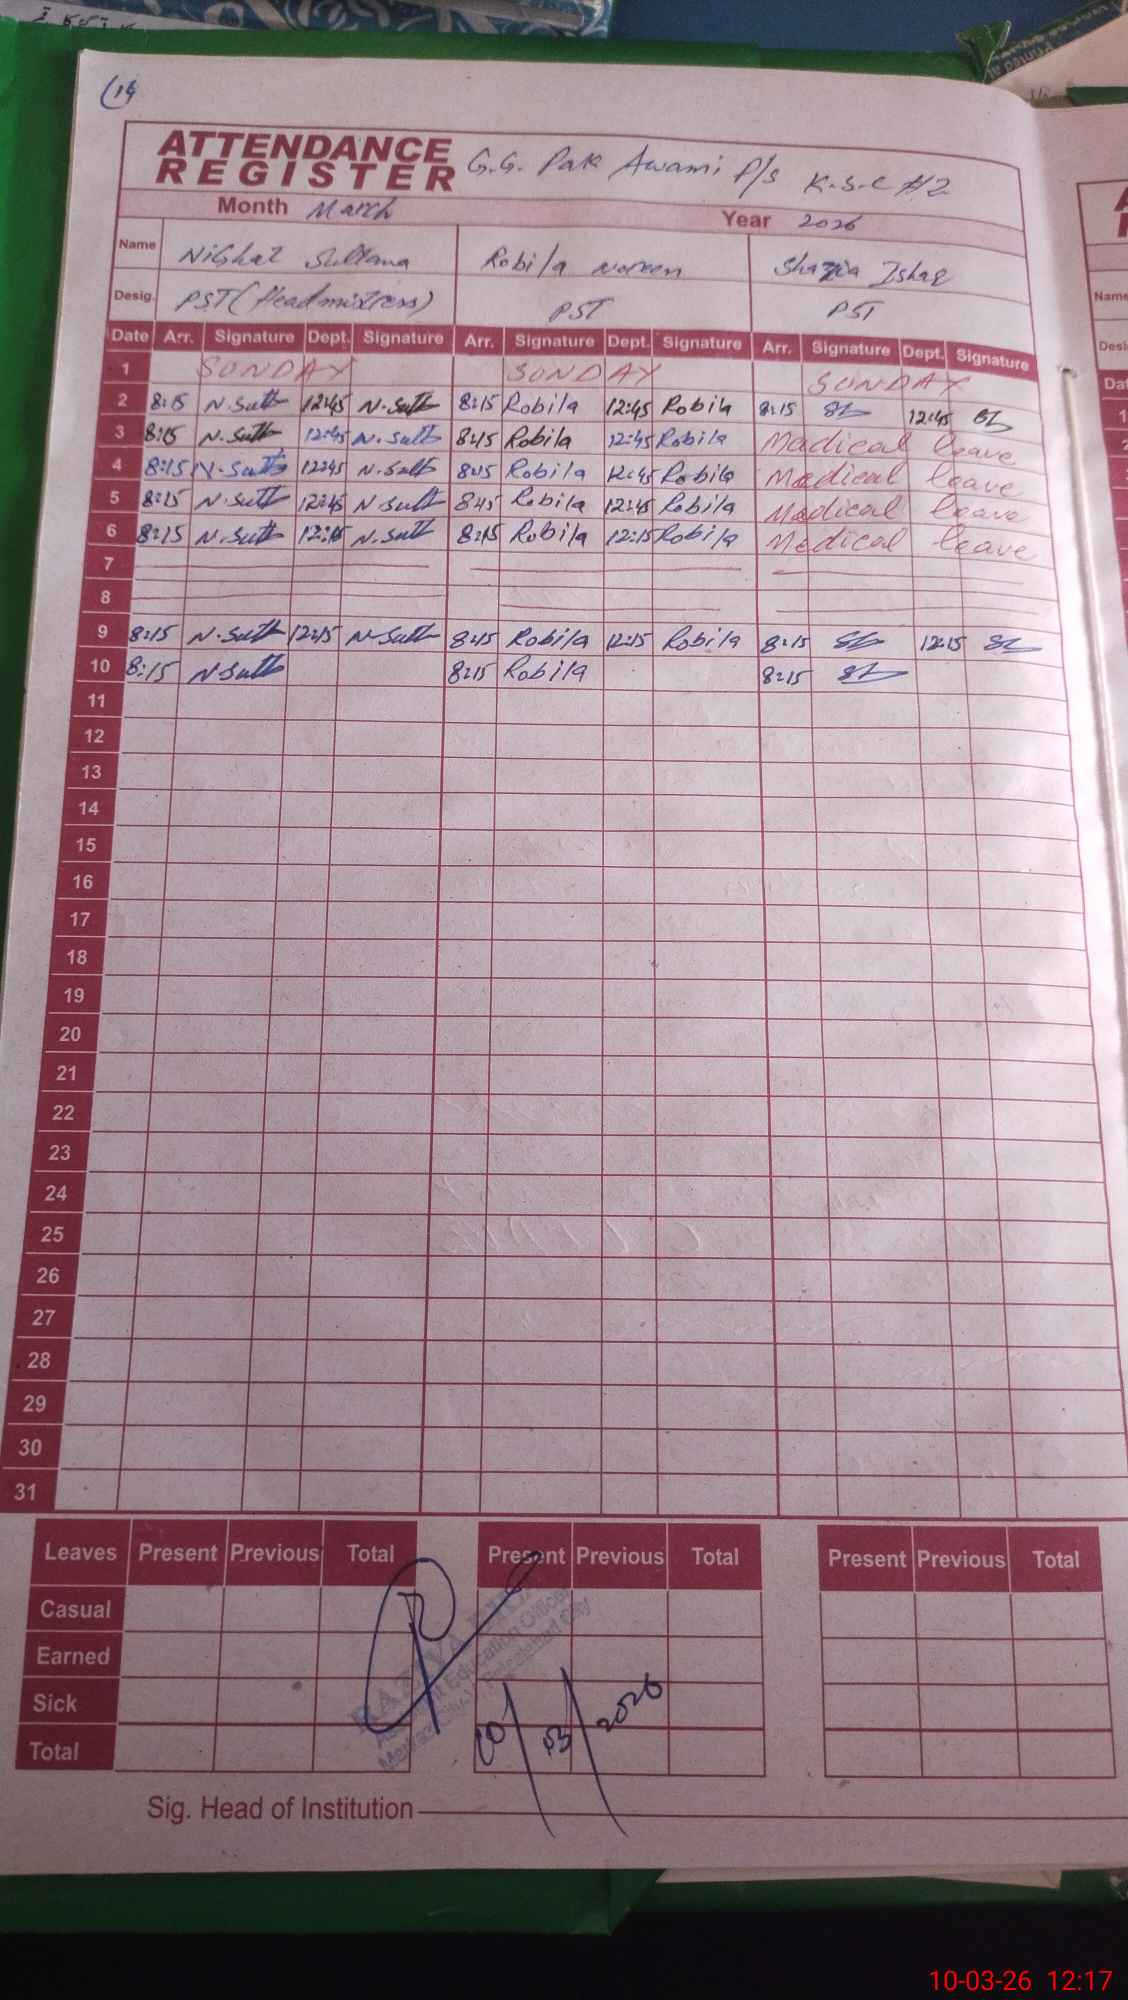 (14
ATTENDANCE REGISTER G.G. Pak Awami P/s K.S.C #2
Month March Year 2026
Name Nighat Sultana Robila Noreen Shazia Ishaq
Desig. PST (Headmistress) PST PST
Date Arr. Signature Dept. Signature Arr. Signature Dept. Signature Arr. Signature Dept. Signature
1 SUNDAY SUNDAY SUNDAY
2 8:15 N.Sult 12:45 N.Sult 8:15 Robila 12:45 Robila 8:15 12:45
3 8:15 N.Sult 12:45 N.Sult 8:15 Robila 12:45 Robila Madical leave
4 8:15 N.Sult 12:45 N.Sult 8:15 Robila 12:45 Robila Madical leave
5 8:15 N.Sult 12:45 N.Sult 8:15 Robila 12:45 Robila Madical leave
6 8:15 N.Sult 12:15 N.Sult 8:15 Robila 12:15 Robila Medical leave
7
8
9 8:15 N.Sult 12:15 N.Sult 8:15 Robila 12:15 Robila 8:15 12:15
10 8:15 N.Sult 8:15 Robila 8:15
11
12
13
14
15
16
17
18
19
20
21
22
23
24
25
26
27
28
29
30
31
Leaves Present Previous Total Present Previous Total Present Previous Total
Casual
Earned
Sick
Total
Education Officer
Faisalabad City
10/03/2026
Sig. Head of Institution
10-03-26 12:17